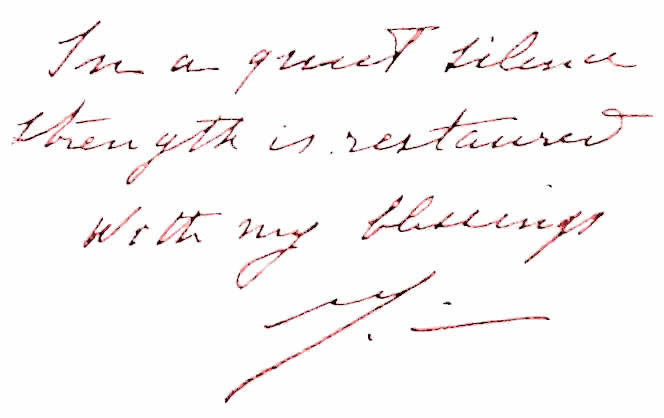 In a quiet silence
strength is restaured
With my blessings